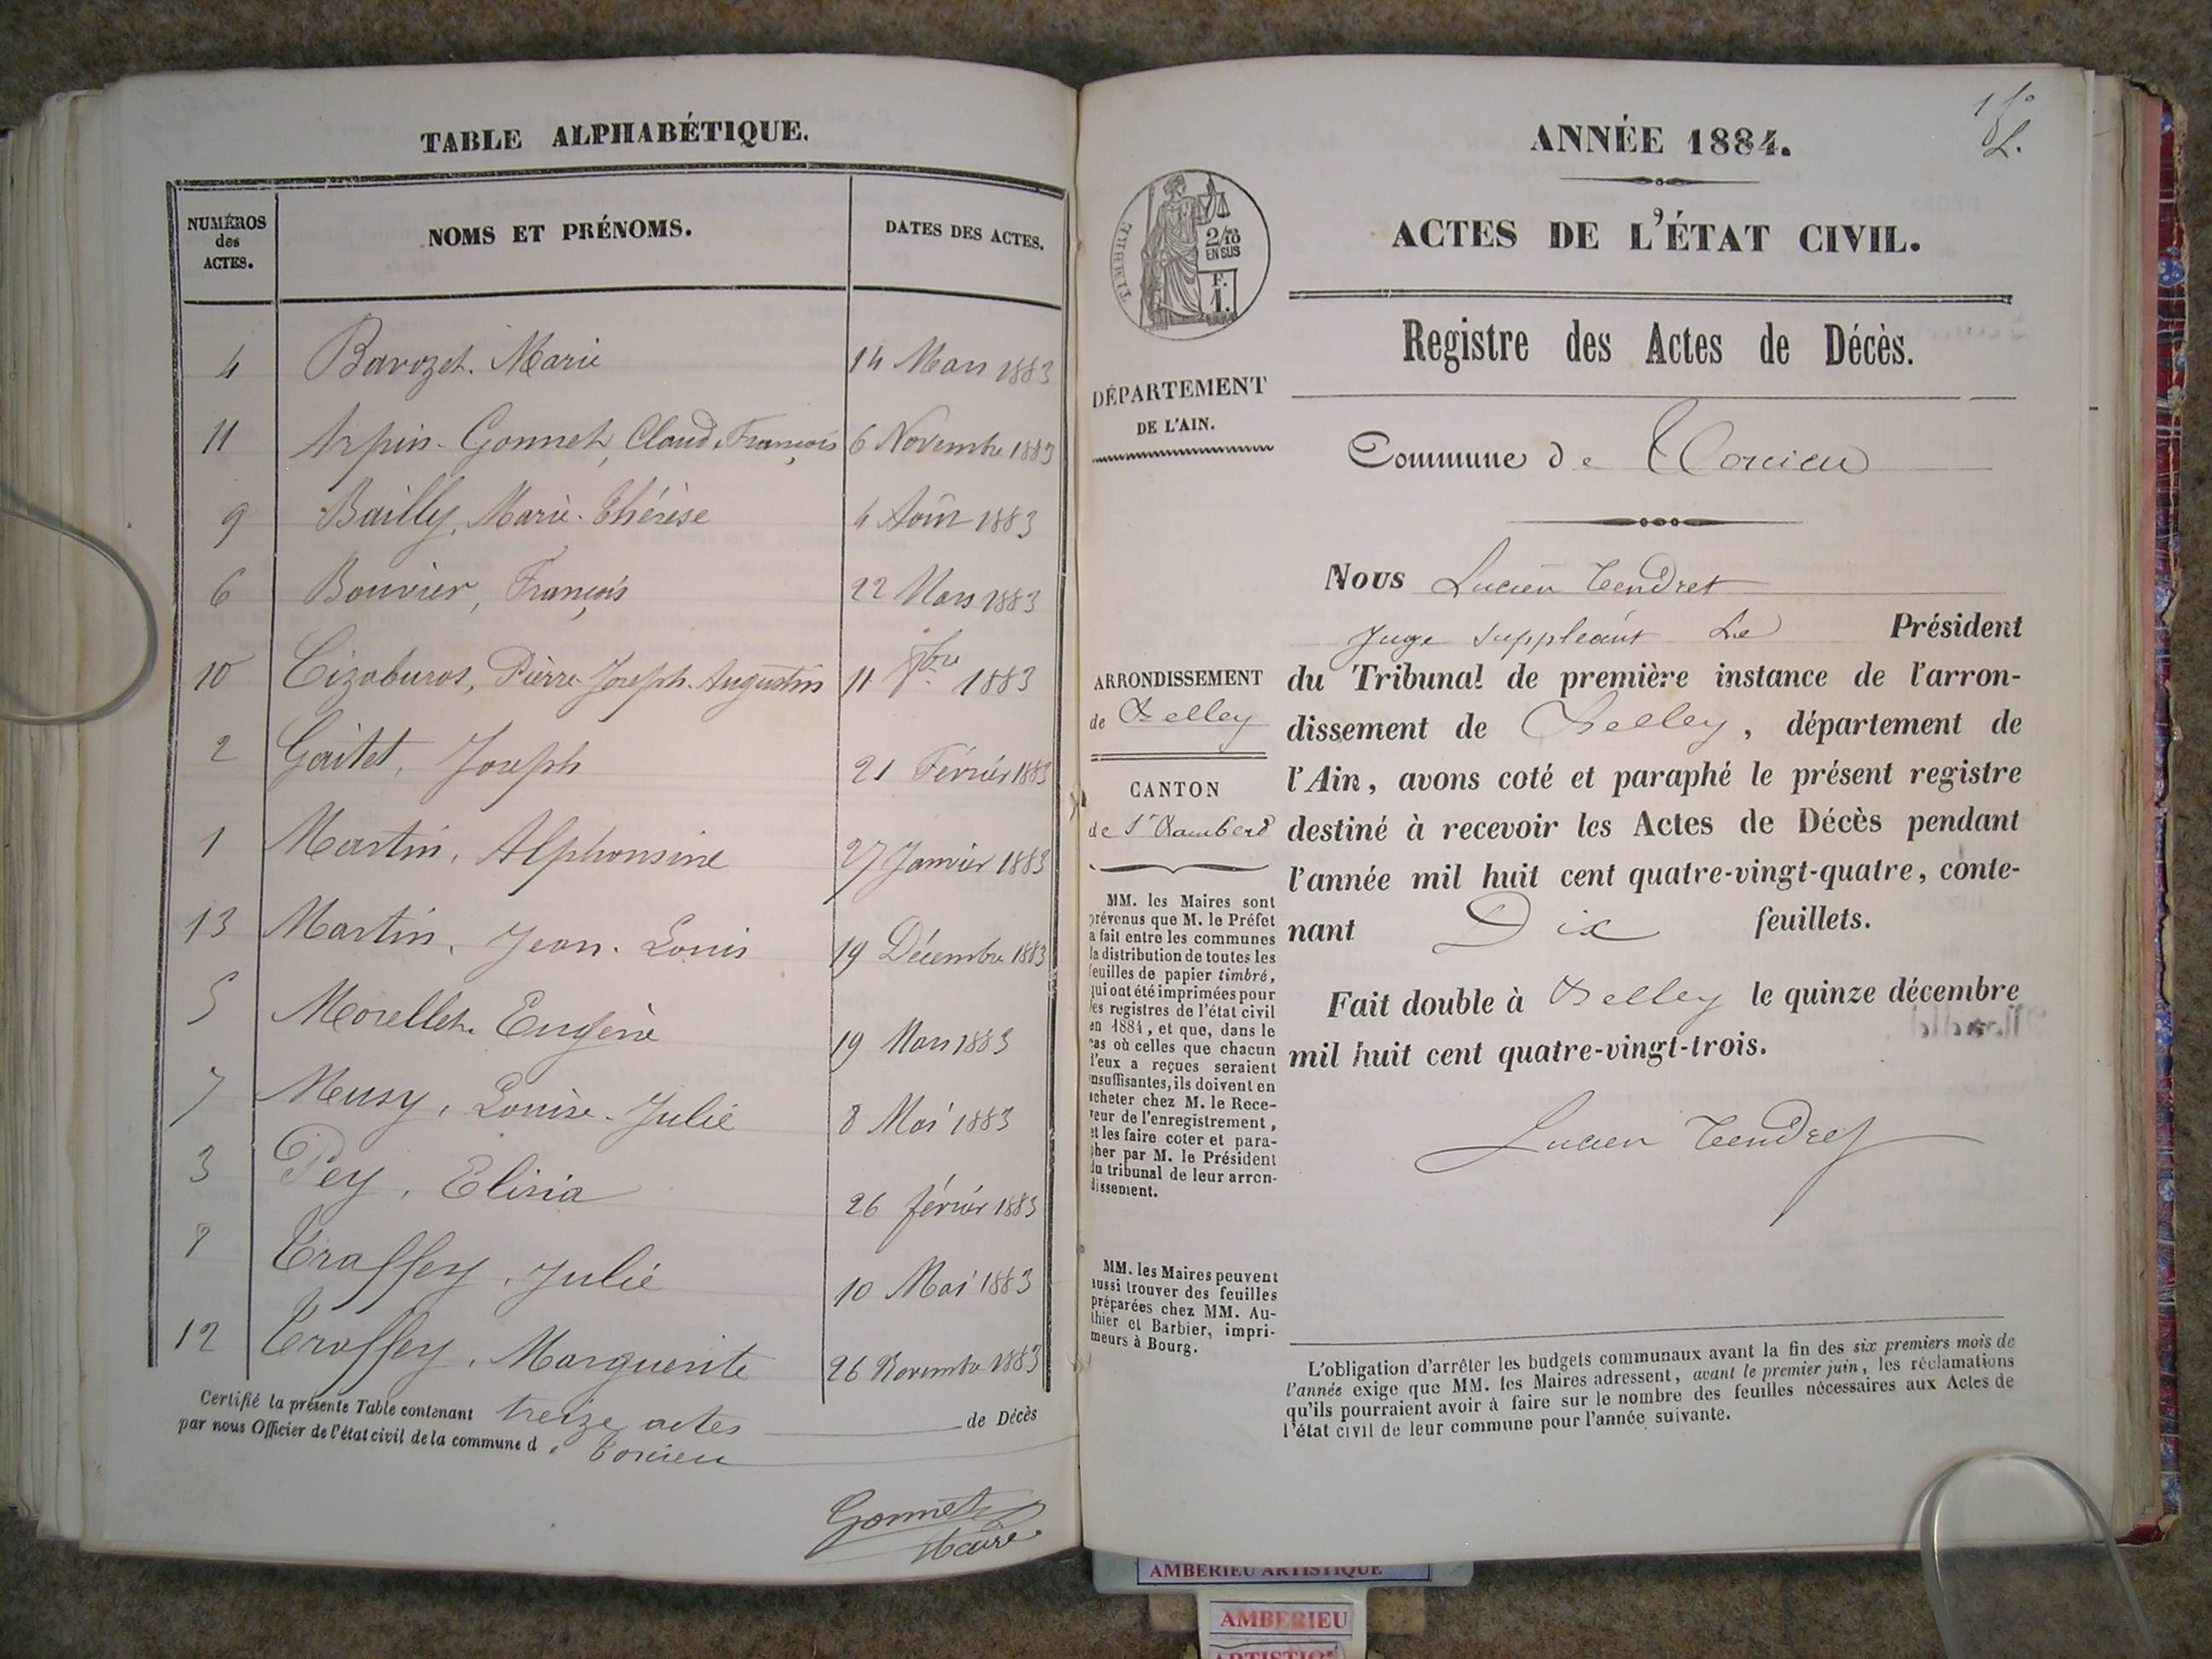 TABLE ALPHABÉTIQUE.
NUMÉROS des ACTES. NOMS ET PRÉNOMS. DATES DES ACTES.
4 Barozet Marie 14 Mars 1883
11 Arpin-Gonnet, Claude François 6 Novembre 1883
9 Bailly, Marie-Thérèse 4 Août 1883
6 Bouvier, François 22 Mars 1883
10 Cizaburos, Pierre Joseph Augustin 11 8bre 1883
2 Gaitet, Joseph 21 Février 1883
1 Martin, Alphonsine 27 Janvier 1883
13 Martin, Jean-Louis 19 Décembre 1883
5 Morellet Eugénie 19 Mars 1883
7 Meusy, Louise-Julie 8 Mai 1883
3 Pey, Elisia 26 février 1883
8 Traffey, Julie 10 Mai 1883
12 Traffey, Marguerite 26 Novembre 1883
Certifié la présente Table contenant treize actes de Décès
par nous Officier de l'état civil de la commune d e Torcieu
Gonnet
Maire
1 fo
L.
ANNÉE 1884.
ACTES DE L'ÉTAT CIVIL.
TIMBRE
2/10
EN SUS
F.
1.
Registre des Actes de Décès.
DÉPARTEMENT
DE L'AIN.
Commune de Torcieu
Nous Lucien Tendret
Juge suppléant Le Président
ARRONDISSEMENT
de Belley
CANTON
de St Rambert
du Tribunal de première instance de l'arron-
dissement de Belley, département de
l'Ain, avons coté et paraphé le présent registre
destiné à recevoir les Actes de Décès pendant
l'année mil huit cent quatre-vingt-quatre, conte-
nant Dix feuillets.
Fait double à Belley le quinze décembre
mil huit cent quatre-vingt-trois.
Lucien Tendret
MM. les Maires sont
prévenus que M. le Préfet
a fait entre les communes
la distribution de toutes les
feuilles de papier timbré,
qui ont été imprimées pour
les registres de l'état civil
en 1884, et que, dans le
cas où celles que chacun
d'eux a reçues seraient
insuffisantes, ils doivent en
acheter chez M. le Rece-
veur de l'enregistrement,
et les faire coter et para-
pher par M. le Président
du tribunal de leur arron-
dissement.
MM. les Maires peuvent
aussi trouver des feuilles
préparées chez MM. Au-
thier et Barbier, impri-
meurs à Bourg.
L'obligation d'arrêter les budgets communaux avant la fin des six premiers mois de
l'année exige que MM. les Maires adressent, avant le premier juin, les réclamations
qu'ils pourraient avoir à faire sur le nombre des feuilles nécessaires aux Actes de
l'état civil de leur commune pour l'année suivante.
AMBERIEU ARTISTIQUE
AMBERIEU
ARTISTIQUE